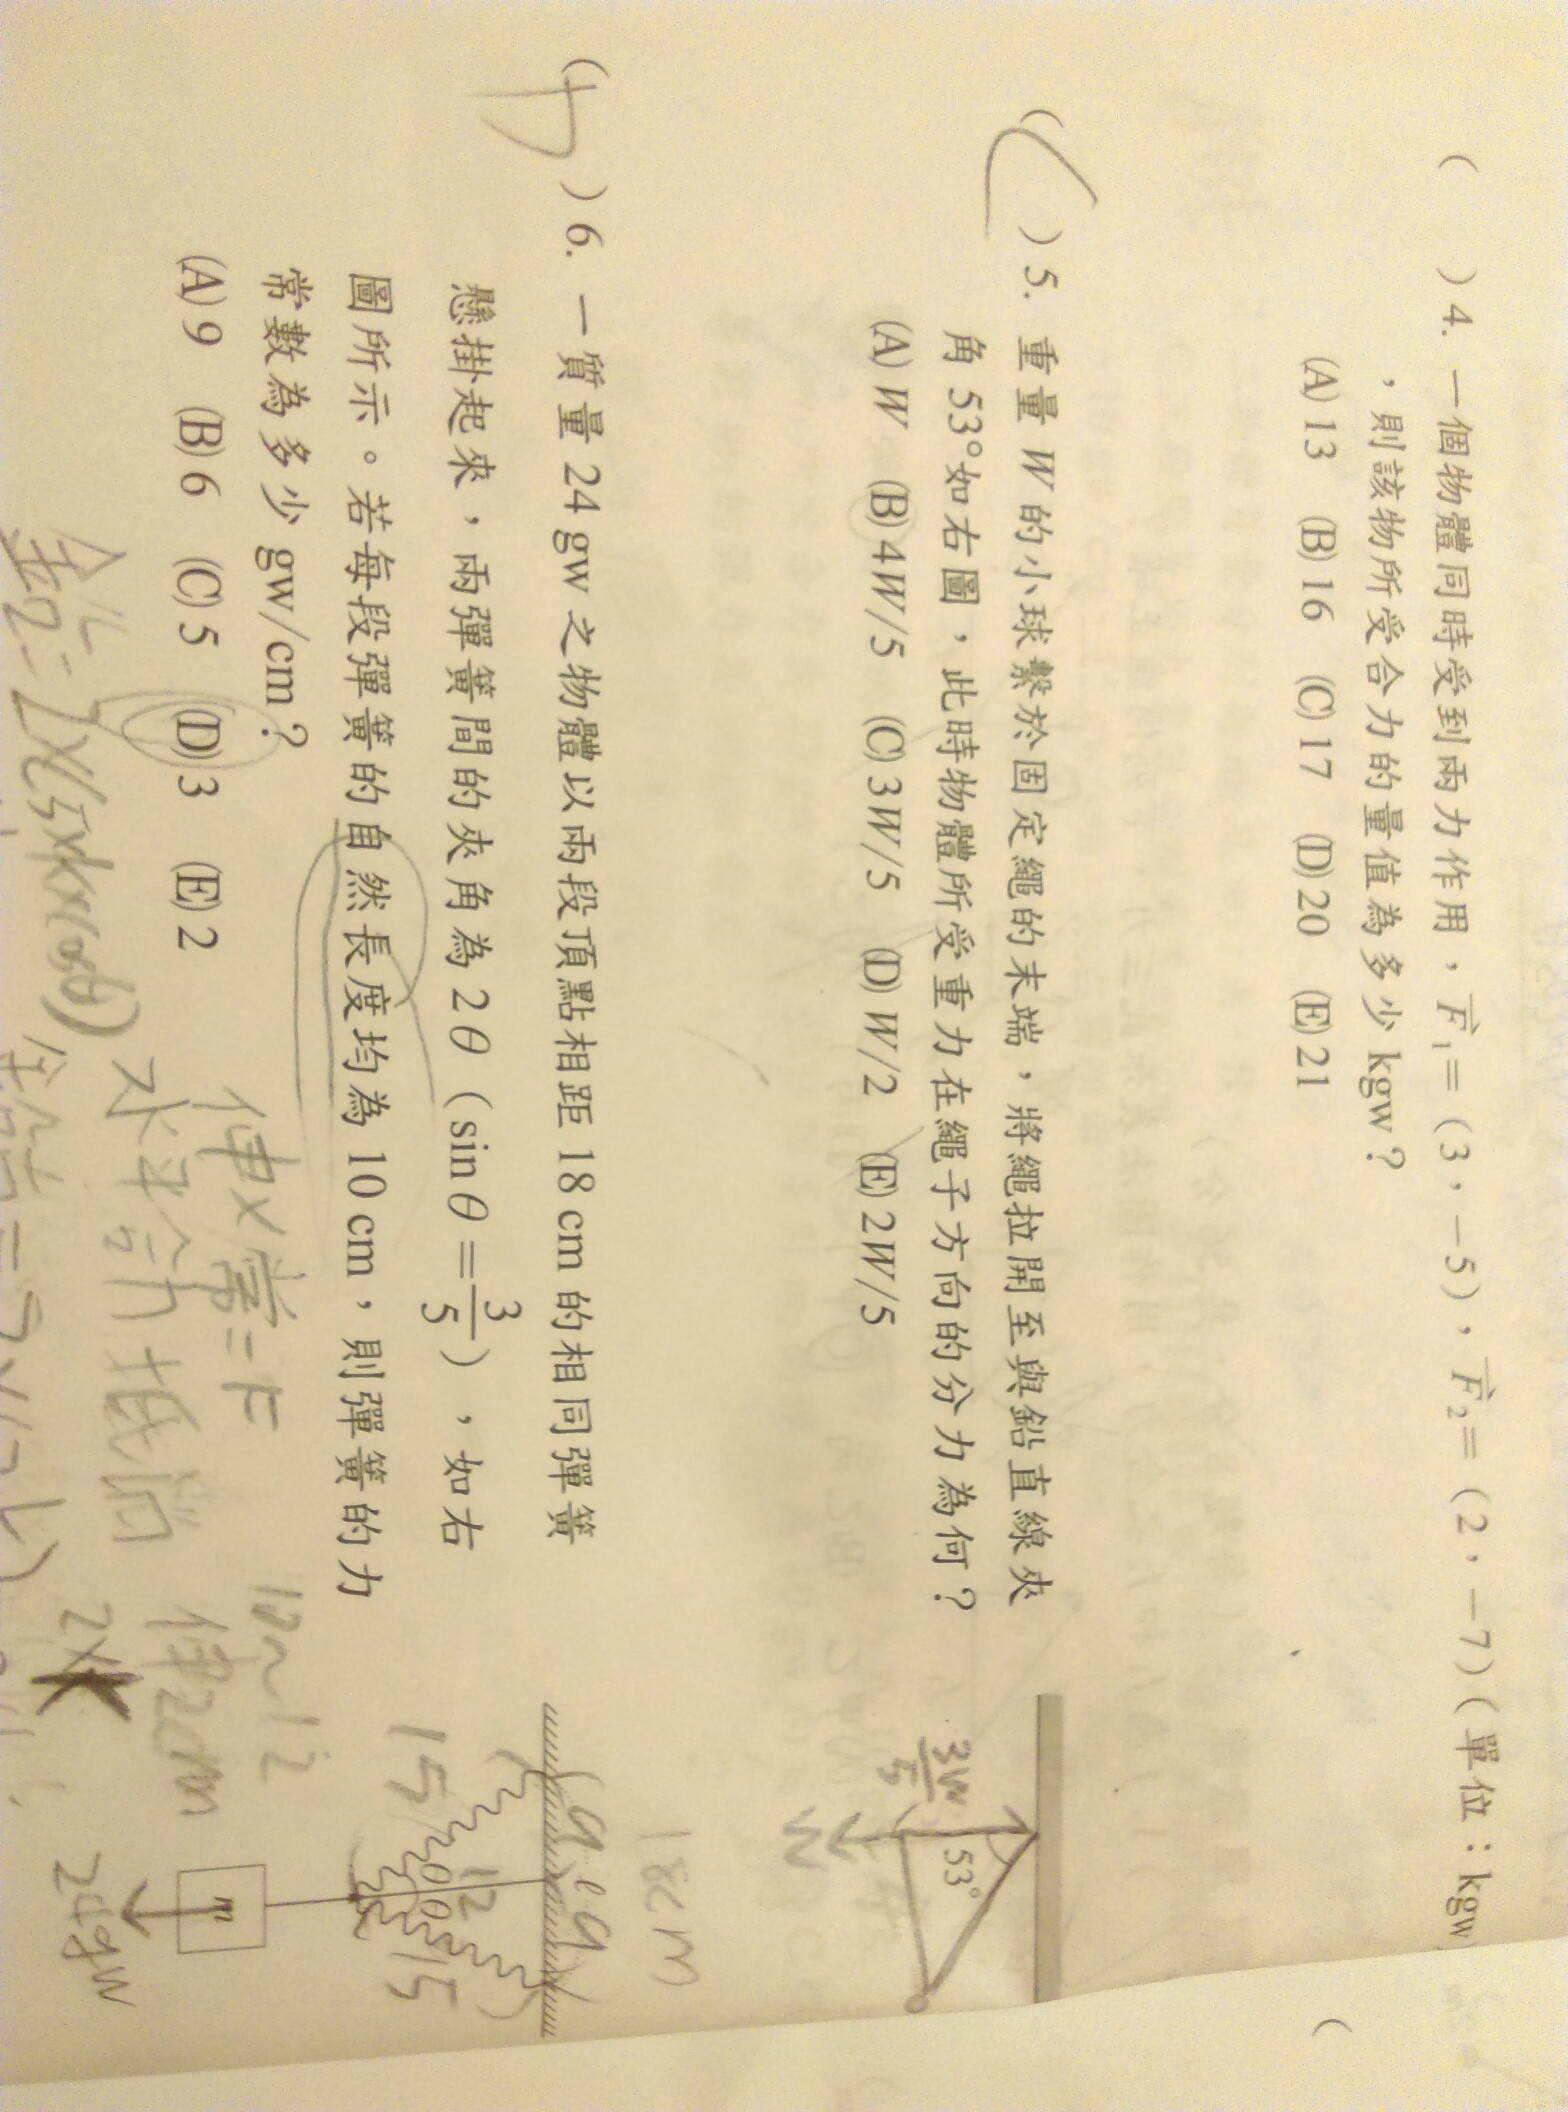 ( ) 4. 一個物體同時受到兩力作用，F₁=(3，-5)，F₂=(2，-7)(單位：kgw)
，則該物所受合力的量值為多少 kgw？
(A) 13 (B) 16 (C) 17 (D) 20 (E) 21
( ) 5. 重量 W 的小球繫於固定繩的末端，將繩拉開至與鉛直線夾
角 53°如右圖，此時物體所受重力在繩子方向的分力為何？
(A) W (B) 4W/5 (C) 3W/5 (D) W/2 (E) 2W/5
3W/5
53°
W
( ) 6. 一質量 24 gw 之物體以兩段頂點相距 18 cm 的相同彈簧
懸掛起來，兩彈簧間的夾角為 2θ（sinθ=3/5），如右
圖所示。若每段彈簧的自然長度均為 10 cm，則彈簧的力
常數為多少 gw/cm？
(A) 9 (B) 6 (C) 5 (D) 3 (E) 2
18cm
9 9
15 12 15
θ θ
m
24gw
伸x常=F
水平合力抵消
10~12
伸2cm